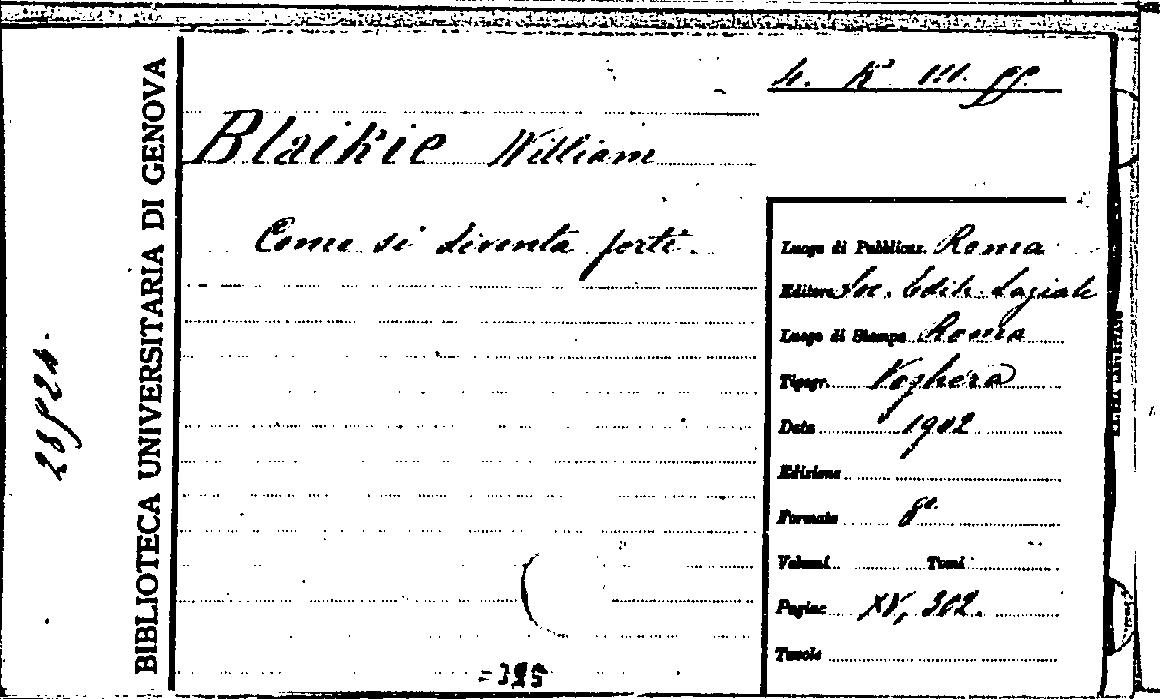 4. K III. 99.
Blaikie William
Come si diventa forti.
BIBLIOTECA UNIVERSITARIA DI GENOVA
Luogo di Pubblicaz. Roma
Editore Soc. Edit. Laziale
Luogo di Stampa Roma
Tipogr. Voghera
Data 1902
Edizione
Formato 8º
Volumi Tomi
Pagine XV, 302.
Tavole